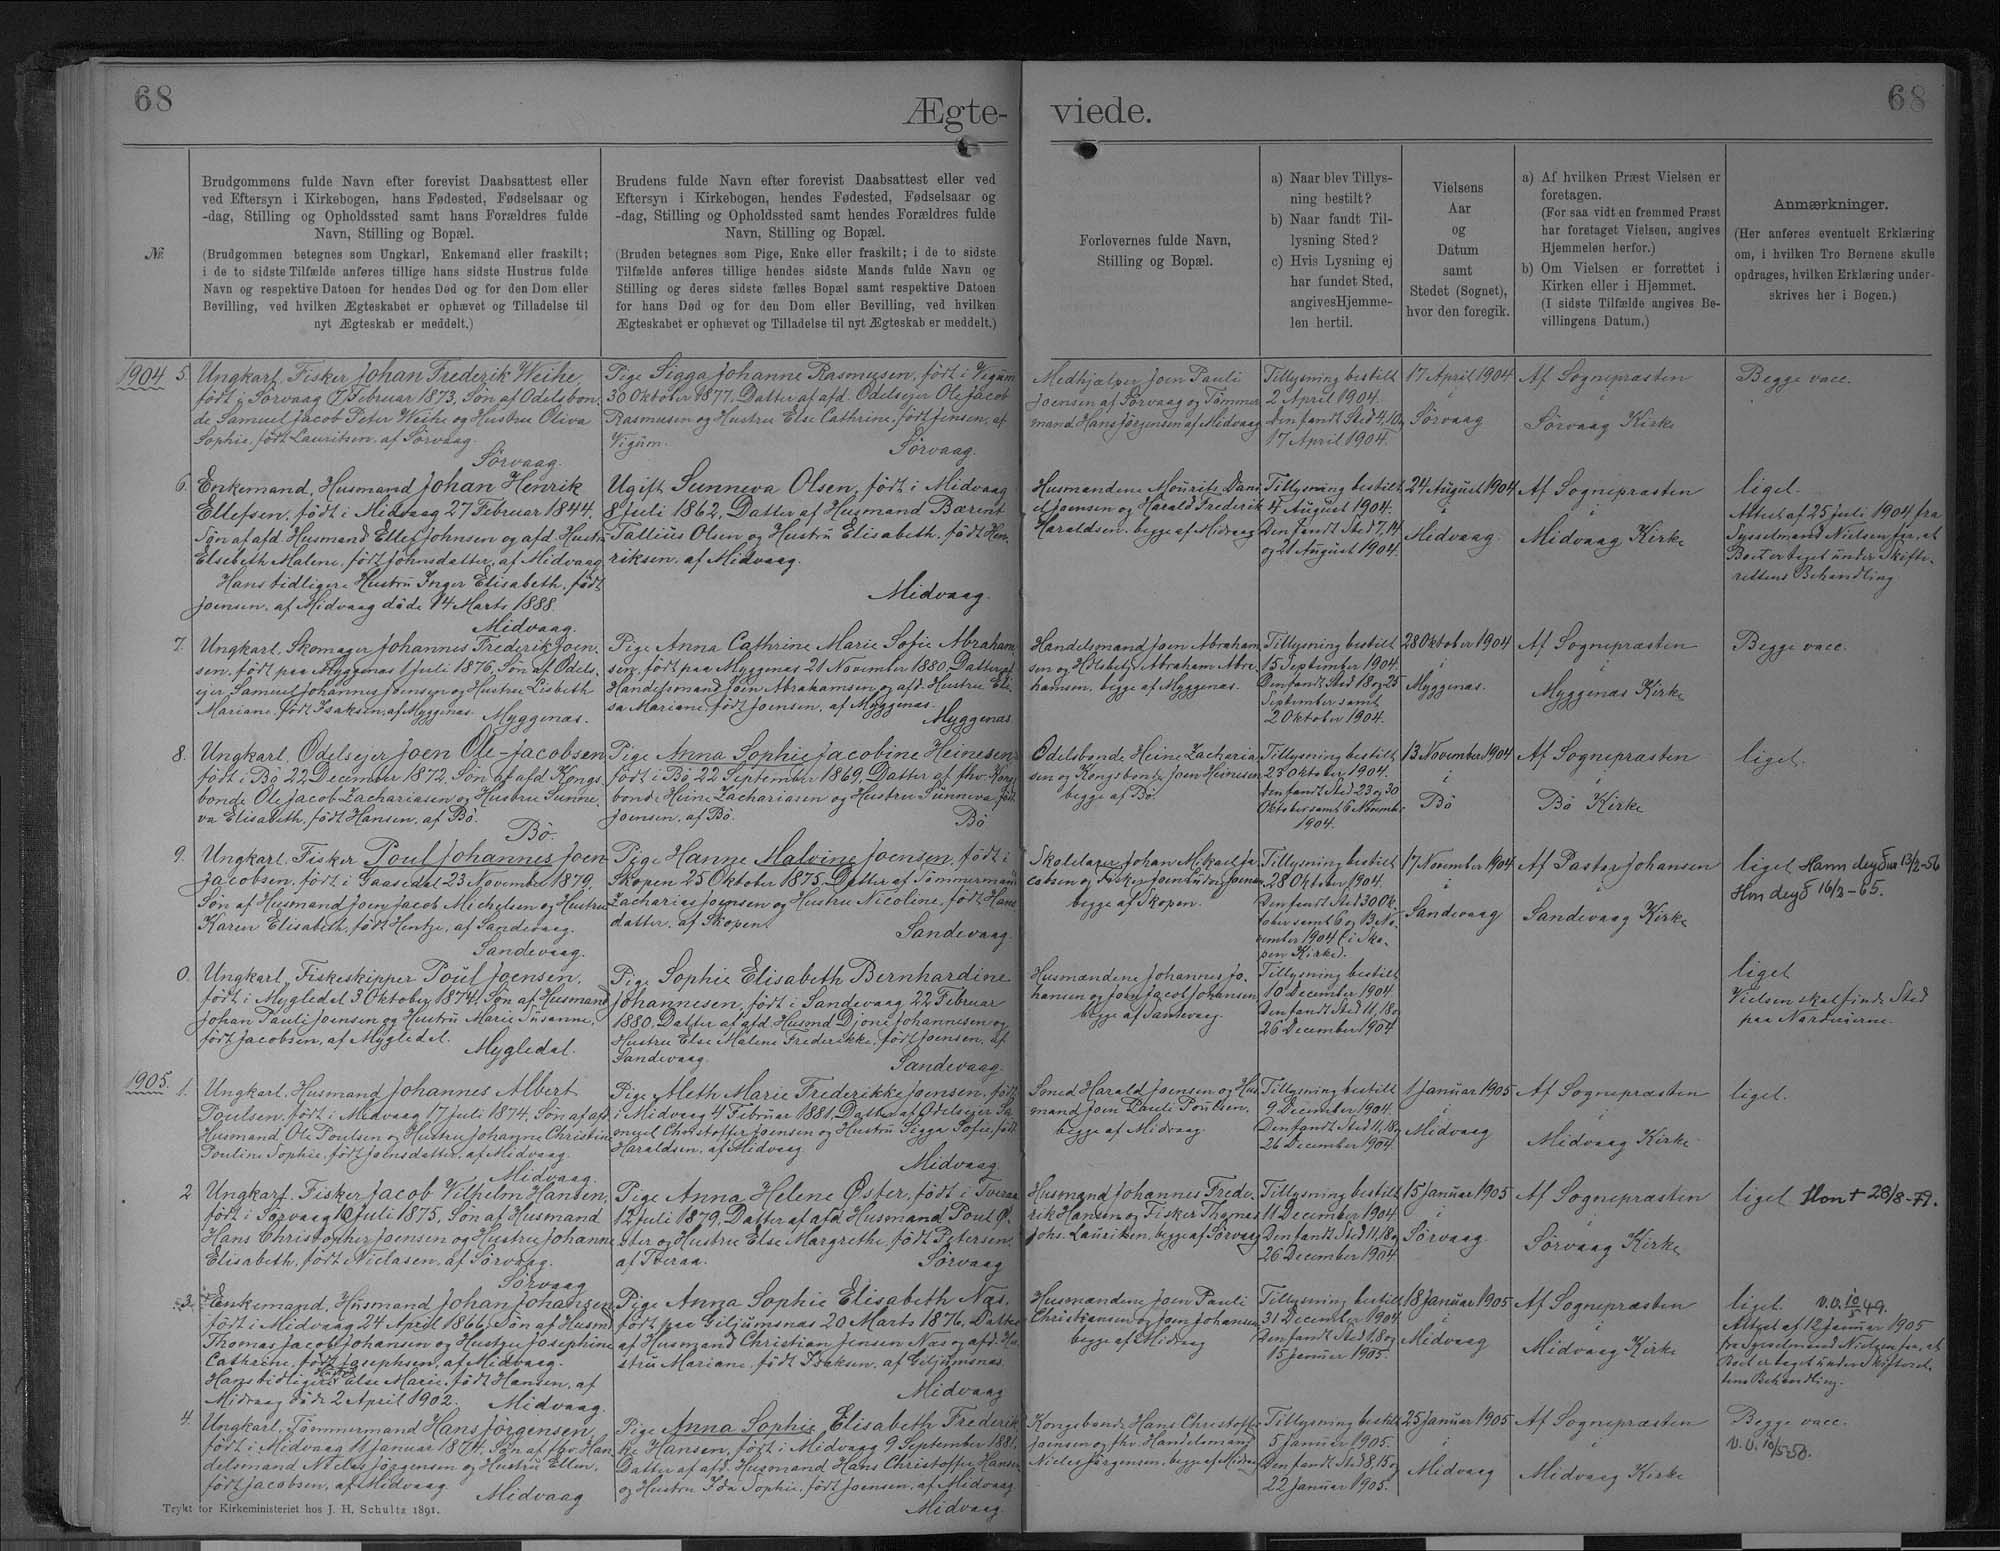 68
Ægte-
viede.
68
Nr.
Brudgommens fulde Navn efter forevist Daabsattest eller
ved Eftersyn i Kirkebogen, hans Fødested, Fødselsaar og
-dag, Stilling og Opholdssted samt hans Forældres fulde
Navn, Stilling og Bopæl.
(Brudgommen betegnes som Ungkarl, Enkemand eller fraskilt;
i de to sidste Tilfælde anføres tillige hans sidste Hustrus fulde
Navn og respektive Datoen for hendes Død og for den Dom eller
Bevilling, ved hvilken Ægteskabet er ophævet og Tilladelse til
nyt Ægteskab er meddelt.)
Brudens fulde Navn efter forevist Daabsattest eller ved
Eftersyn i Kirkebogen, hendes Fødested, Fødselsaar og
-dag, Stilling og Opholdssted samt hendes Forældres fulde
Navn, Stilling og Bopæl.
(Bruden betegnes som Pige, Enke eller fraskilt; i de to sidste
Tilfælde anføres tillige hendes sidste Mands fulde Navn og
Stilling og deres sidste fælles Bopæl samt respektive Datoen
for hans Død og for den Dom eller Bevilling, ved hvilken
Ægteskabet er ophævet og Tilladelse til nyt Ægteskab er meddelt.)
Forlovernes fulde Navn,
Stilling og Bopæl.
a) Naar blev Tillys-
ning bestilt?
b) Naar fandt Til-
lysning Sted?
c) Hvis Lysning ej
har fundet Sted,
angives Hjemme-
len hertil.
Vielsens
Aar
og
Datum
samt
Stedet (Sognet),
hvor den foregik.
a) Af hvilken Præst Vielsen er
foretagen.
(For saa vidt en fremmed Præst
har foretaget Vielsen, angives
Hjemmelen herfor.)
b) Om Vielsen er forrettet i
Kirken eller i Hjemmet.
(I sidste Tilfælde angives Be-
villingens Datum.)
Anmærkninger.
(Her anføres eventuelt Erklæring
om, i hvilken Tro Børnene skulle
opdrages, hvilken Erklæring under-
skrives her i Bogen.)
1904 5. Ungkarl, Fisker Johan Frederik Weihe,
født i Sørvaag 7 Februar 1873, Søn af Odelsbon-
de Samuel Jacob Peter Weihe og Hustru Oliva
Sophie, født Lauritsen, af Sørvaag.
Sørvaag.
Pige Sigga Johanne Rasmusen, født i Vigum
30 Oktober 1877, Datter af afd. Odelsejer Ole Jacob
Rasmusen og Hustru Else Cathrine, født Jensen, af
Vigum.
Sørvaag.
Medhjælper Joen Pauli
Joensen af Sørvaag og Tømmer
mand Hans Jørgensen af Midvaag
Tillysning bestilt
2 April 1904.
Den fandt Sted 4, 10 og
17 April 1904.
17 April 1904
i
Sørvaag
Af Sognepræsten
i
Sørvaag Kirke
Begge vacc.
6. Enkemand, Husmand Johan Henrik
Ellefsen, født i Midvaag 27 Februar 1844,
Søn af afd. Husmand Ellef Johnsen og afd. Hustru
Elsebeth Malene, født Johnsdatter, af Midvaag
Hans tidligere Hustru Inger Elisabeth, født
Joensen, af Midvaag døde 14 Marts 1888.
Midvaag.
Ugift Sunneva Olsen, født i Midvaag
8 Juli 1862, Datter af Husmand Bærent
Tallius Olsen og Hustru Elisabeth, født Hen-
riksen, af Midvaag.
Midvaag.
Husmændene Mourits Dani
el Joensen og Harald Frederik
Haraldsen, begge af Midvaag
Tillysning bestilt
4 August 1904.
Den fandt Sted 7, 14
og 21 August 1904.
24 August 1904
i
Midvaag
Af Sognepræsten
i
Midvaag Kirke
liget.
Attest af 25 Juli 1904 fra
Sysselmand Nielsen for, at
Boet er taget under Skifte-
rettens Behandling
7. Ungkarl, Skomager Johannes Frederik Joen-
sen, født paa Myggenæs 1 Juli 1876, Søn af Odels-
ejer Samuel Johannes Joensen og Hustru Lisbeth
Mariane, født Isaksen, af Myggenæs.
Myggenæs.
Pige Anna Cathrine Marie Sofie Abraham
sen, født paa Myggenæs 21 November 1880, Datter af
Handelsmand Joen Abrahamsen og afd. Hustru Eli-
sa Mariane, født Joensen, af Myggenæs.
Myggenæs
Handelsmand Joen Abraham
sen og Abraham Abra-
hamsen, begge af Myggenæs.
Tillysning bestilt
15 September 1904.
Den fandt Sted 18 og 25
September samt
2 Oktober 1904.
28 Oktober 1904
i
Myggenæs.
Af Sognepræsten
i
Myggenæs Kirke
Begge vacc.
8. Ungkarl, Odelsejer Joen Ole-Jacobsen
født i Bø 22 December 1872, Søn af afd. Kongs
bonde Ole Jacob Zachariasen og Hustru Sunne-
va Elisabeth, født Hansen, af Bø.
Bø.
Pige Anna Sophie Jacobine Heinesen
født i Bø 22 September 1869, Datter af fhv. Kongs
bonde Heine Zachariasen og Hustru Sunneva, født
Joensen, af Bø.
Bø
Odelsbonde Heine Zacharia
sen og Kongsbonde Joen Heinesen
begge af Bø.
Tillysning bestilt
23 Oktober 1904.
Den fandt Sted 23 og 30
Oktober samt 6 November
1904.
13 November 1904
i
Bø
Af Sognepræsten
i
Bø Kirke
liget.
9. Ungkarl, Fisker Poul Johannes Joen
Jacobsen, født i Gaasedal 23 November 1879,
Søn af Husmand Joen Jacob Michelsen og Hustru
Karen Elisabeth, født Hentze, af Sandevaag.
Sandevaag.
Pige Hanne Malvine Joensen, født i
Skopen 25 Oktober 1875, Datter af Tømmermand
Zacharias Joensen og Hustru Nicoline, født Hans
datter, af Skopen.
Sandevaag.
Skolelærer Johan Mikael Ja
cobsen og Fisker Joen Ludvig Joensen
begge af Skopen.
Tillysning bestilt
28 Oktober 1904.
Den fandt Sted 30 Ok-
tober samt 6 og 13 No-
vember 1904 (i Sko-
pen Kirke).
17 November 1904
i
Sandevaag
Af Pastor Johansen
i
Sandevaag Kirke
liget. Hann deyð 13/2-56
Hon deyð 16/2-65.
0. Ungkarl, Fiskeskipper Poul Joensen,
født i Mygledal 3 Oktober 1874, Søn af Husmand
Johan Pauli Joensen og Hustru Marie Susanne,
født Jacobsen, af Mygledal.
Mygledal.
Pige Sophie Elisabeth Bernhardine
Johannesen, født i Sandevaag 22 Februar
1880, Datter af afd. Husmd Djone Johannesen og
Hustru Else Malene Frederikke, født Joensen, af
Sandevaag.
Sandevaag.
Husmændene Johannes Jo-
hansen og Joen Jacob Johansen
begge af Sandevaag.
Tillysning bestilt
10 December 1904
Den fandt Sted 11, 18 og
26 December 1904
liget
Vielsen skal finde Sted
paa Norderøerne.
1905. 1. Ungkarl, Husmand Johannes Albert
Poulsen, født i Midvaag 17 Juli 1874, Søn af afd.
Husmand Ole Poulsen og Hustru Johanne Christine
Pouline Sophie, født Joensdatter, af Midvaag.
Midvaag.
Pige Aleth Marie Frederikke Joensen, født
i Midvaag 4 Februar 1881, Datter af Odelsejer Sa
muel Christoffer Joensen og Hustru Sigga Sofie, født
Haraldsen, af Midvaag
Midvaag.
Smed Harald Joensen og Hus
mand Joen Pauli Poulsen,
begge af Midvaag.
Tillysning bestilt
9 December 1904.
Den fandt Sted 11, 18 og
26 December 1904.
1 Januar 1905
i
Midvaag
Af Sognepræsten
i
Midvaag Kirke
liget.
2 Ungkarl, Fisker Jacob Vilhelm Hansen,
født i Sørvaag 10 Juli 1875, Søn af Husmand
Hans Christopher Joensen og Hustru Johanne
Elisabeth, født Niclasen, af Sørvaag.
Sørvaag
Pige Anna Helene Øster, født i Tveraa
12 Juli 1879, Datter af afd. Husmand Poul Ø-
ster og Hustru Else Margrethe, født Petersen,
af Tveraa.
Sørvaag
Husmand Johannes Frede-
rik Hansen og Fisker Thomas
Johs. Lauritsen, begge af Sørvaag
Tillysning bestilt
11 December 1904
Den fandt Sted 11, 18 og
26 December 1904
15 Januar 1905
i
Sørvaag
Af Sognepræsten
i
Sørvaag Kirke
liget. Hon + 28/8-79.
3. Enkemand, Husmand Johan Johansen
født i Midvaag 24 April 1866, Søn af Husmd
Thomas Jacob Johansen og Hustru Josephine
Cathrine, født Josephsen, af Midvaag.
Hans tidligere Hustru Else Marie, født Hansen, af
Midvaag døde 2 April 1902.
Midvaag.
Pige Anna Sophie Elisabeth Næs,
født paa Giljumsnæs 20 Marts 1876, Datter
af Husmand Christian Jensen Næs og afd. Hu-
stru Mariane, født Isaksen, af Giljumsnæs.
Midvaag
Husmændene Joen Pauli
Christiansen og Joen Johansen
begge af Midvaag
Tillysning bestilt
31 December 1904
Den fandt Sted 1, 8 og
15 Januar 1905.
18 Januar 1905
i
Midvaag
Af Sognepræsten
i
Midvaag Kirke
liget. v.v. 10/5 49.
Attest af 12 Januar 1905
fra Sysselmand Nielsen for, at
Boet er taget under Skifteret-
tens Behandling.
4. Ungkarl, Tømmermand Hans Jørgensen,
født i Midvaag 11 Januar 1874, Søn af fhv. Han
delsmand Niels Jørgensen og Hustru Ellen,
født Jacobsen, af Midvaag
Midvaag
Pige Anna Sophie Elisabeth Frederik
ke Hansen, født i Midvaag 9 September 1881,
Datter af afd. Husmand Hans Christoffer Hansen
og Hustru Ida Sophie, født Joensen, af Midvaag
Midvaag.
Kongsbonde Hans Christoffer
Joensen og fhv. Handelsmand
Niels Jørgensen, begge af Midvaag
Tillysning bestilt
5 Januar 1905.
Den fandt Sted 8, 15 og
22 Januar 1905.
25 Januar 1905
i
Midvaag
Af Sognepræsten
i
Midvaag Kirke
Begge vacc.
v.v. 10/5-50.
Trykt for Kirkeministeriet hos J. H. Schultz 1891.